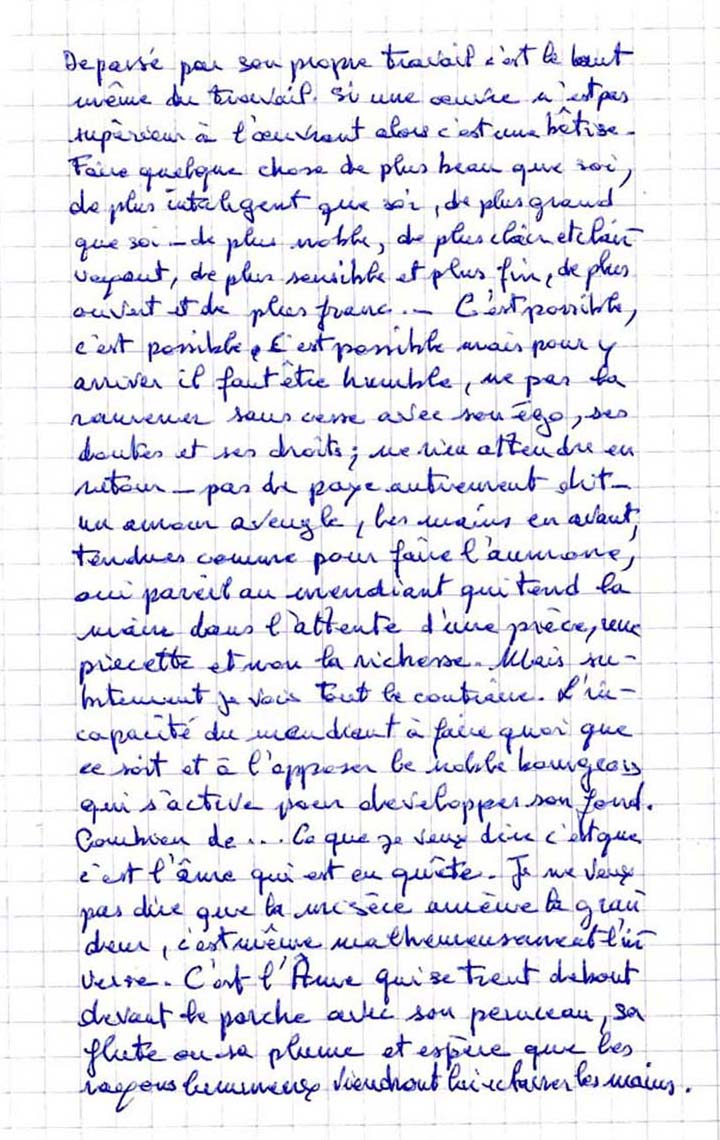 Depassé par son propre travail c'est le haut
même du travail. Si une œuvre n'est pas
supèrieur à l'œuvrant alors c'est une bêtise.
Faire quelque chose de plus beau que soi,
de plus inteligent que soi, de plus grand
que soi – de plus noble, de plus clair et clair
voyant, de plus sensible et plus fin, de plus
ouvert et de plus franc. – C'est possible,
c'est possible, C'est possible mais pour y
arriver il faut être humble, ne pas la
ramener sans cesse avec son égo, ses
doutes et ses droits ; ne rien attendre en
retour – pas de paye autrement dit –
un amour aveugle, les mains en avant,
tendues comme pour faire l'aumone,
oui pareil au mendiant qui tend la
main dans l'attente d'une pièce, une
piecette et non la richesse. Mais su-
bitement je vois tout le contraire. L'in-
capacité du mendiant à faire quoi que
ce soit et à l'opposer le noble bourgeois
qui s'active pour developper son fond.
Combien de ... Ce que je veux dire c'est que
c'est l'âme qui est en quête. Je ne veux
pas dire que la misère amène la gran
deur, c'est même malheureusement l'in
verse. C'est l'Âme qui se tient debout
devant le porche avec son pinceau, sa
flute ou sa plume et espère que les
rayons lumineux viendront lui eclairer les mains.